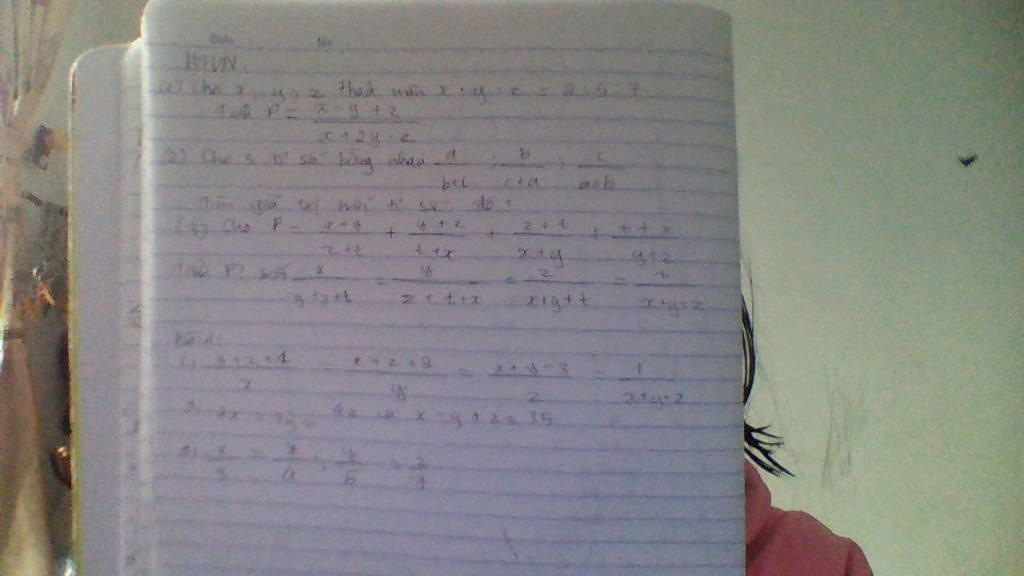 Date No
BTVN.
(1) Cho x, y, z thoả mãn x : y : z = 2 : 5 : 7
Tính P = x - y + z / x + 2y - z
(2) Cho 3 tỉ số bằng nhau a / b+c ; b / c+a ; c / a+b
Tìm giá trị mỗi tỉ số đó?
(3) Cho P = x+y / z+t + y+z / t+x + z+t / x+y + t+x / y+z
Tính P? biết x / y+z+t = y / z+t+x = z / x+y+t = t / x+y+z
y+z+1 / x = x+z+2 / y = x+y-3 / z = 1 / x+y+z
2x = 3y = và x - y + z = 35
x / 3 = y / 4 ; y / = z /